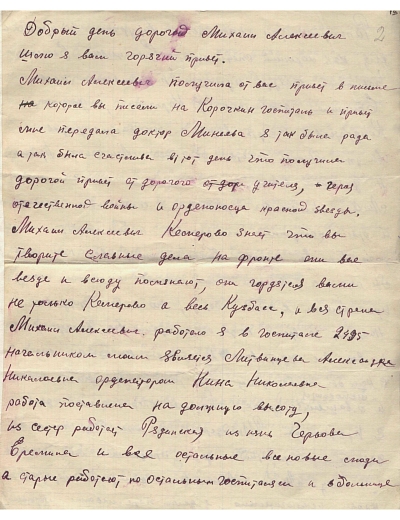 2
Добрый день дорогой Михаил Алексеевич
шлю я вам горячий привет.
Михаил Алексеевич получила от вас привет в письме
которое вы писали на Корочкин госпиталь и привет
мне передала доктор Минеева я так была рада
а так была счастлива в тот день что получила
дорогой привет от дорогого учителя, героя
отечественной войны и орденоносца красной звезды.
Михаил Алексеевич Кемерово знает что вы
творите славные дела на фронте они вас
везде и всюду поминают, они гордятся вами
не только Кемерово а весь Кузбасс, и вся страна
Михаил Алексеевич работаю я в госпитале 2495
начальником моим является Литвинцева Александра
Николаевна ординатором Нина Николаевна
работа поставлена на должную высоту,
из сестер работает из них
Еремина и все остальные все новые люди
а старые работают по остальным госпиталям и в больнице